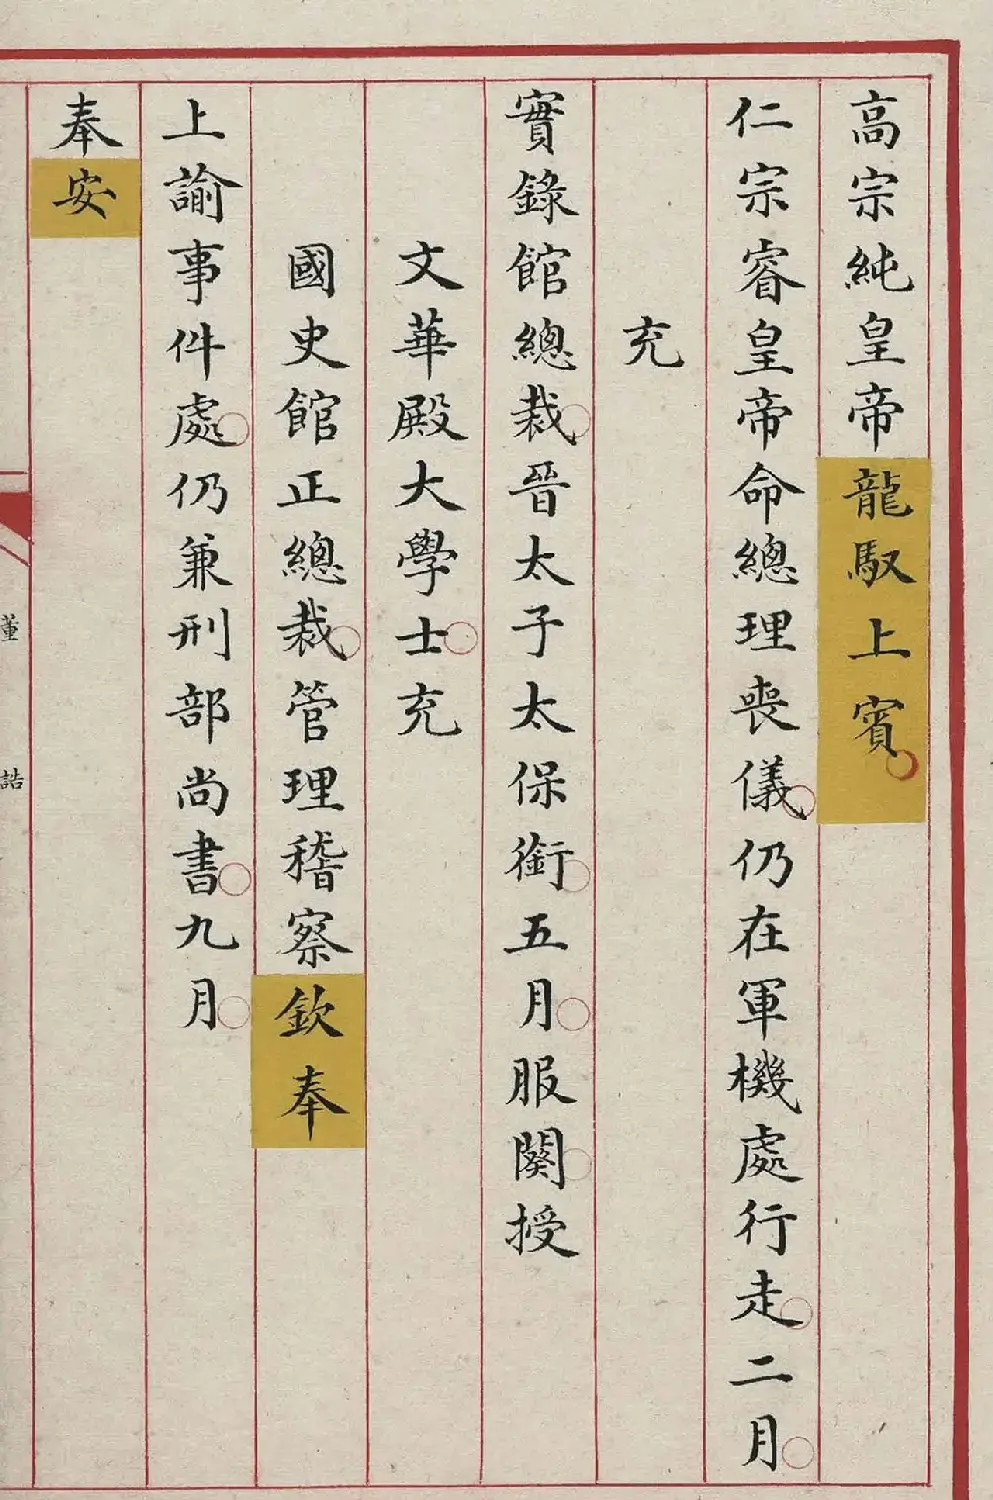 高宗純皇帝龍馭上賓
仁宗睿皇帝命總理喪儀仍在軍機處行走二月
充
實錄館總裁晉太子太保銜五月服闋授
文華殿大學士充
國史館正總裁管理稽察欽奉
上諭事件處仍兼刑部尚書九月
奉安
董誥